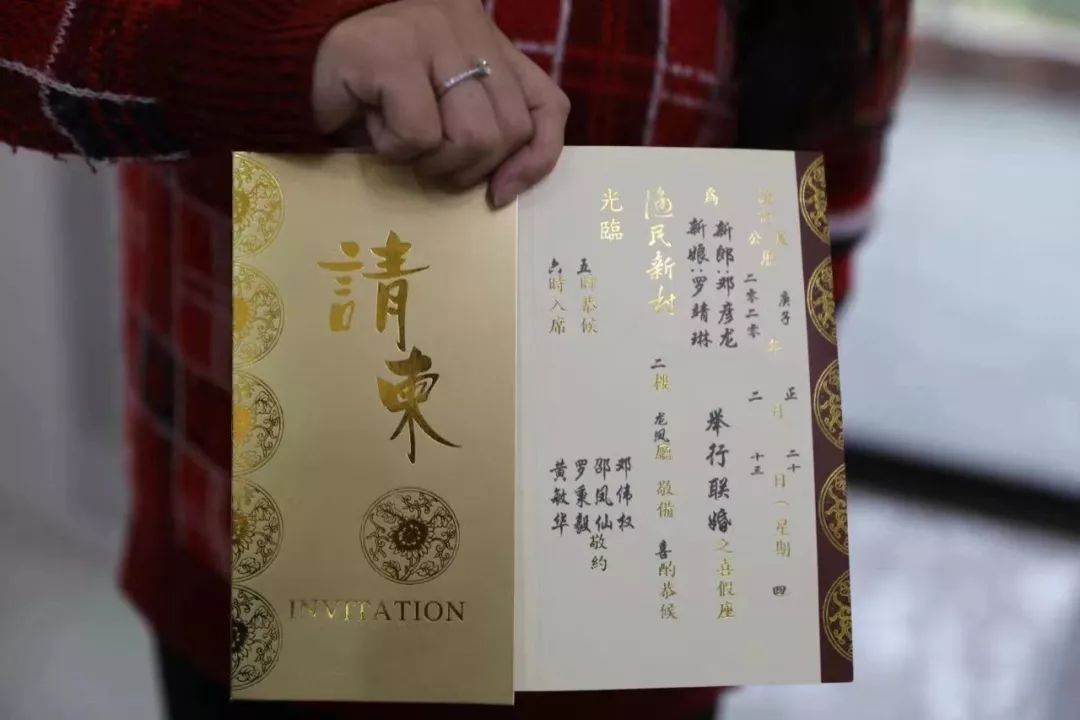 請柬
INVITATION
庚子 年 正 月 二十 日(星期四
公曆 二零二零 二 十三
為
新郎:邓彦龙
新娘:罗靖琳
举行联婚之喜假座
渔民新村 二樓 龙凤廳 敬備 喜酌恭候
光臨
五時恭候
六時入席
邓伟权
邵凤仙
罗秉毅
黄敏华
敬約